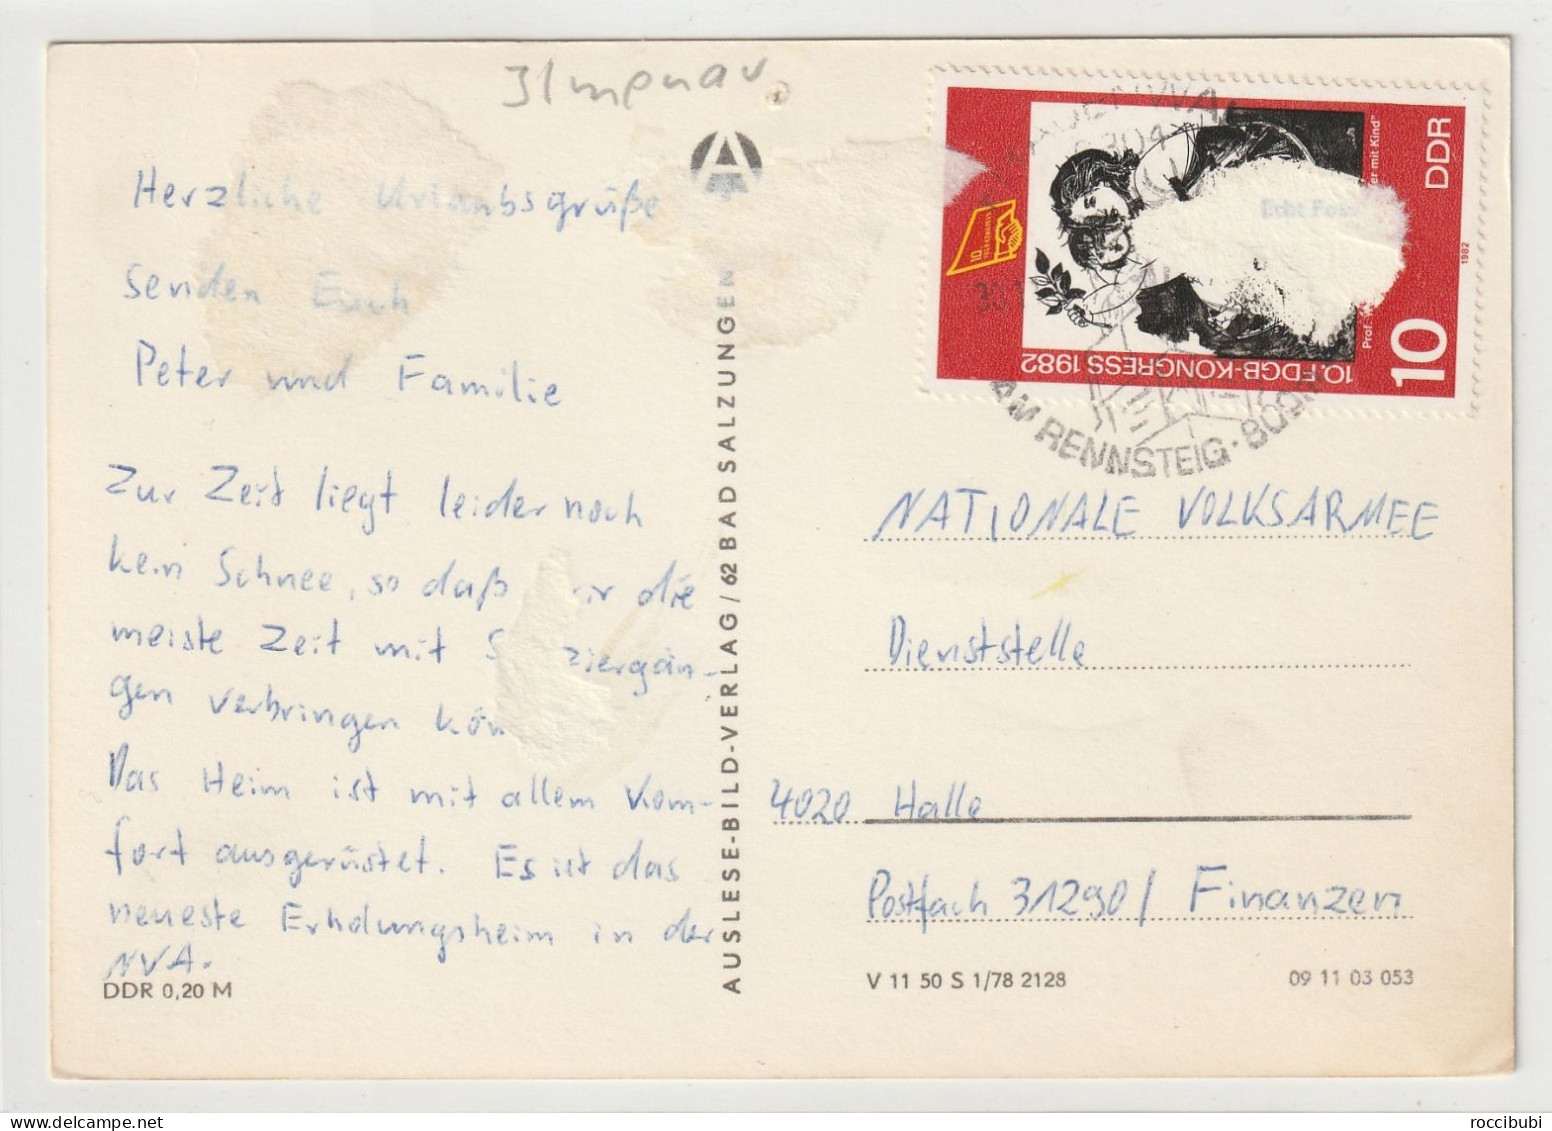 Ilmenau
Herzliche Urlaubsgrüße
senden Euch
Peter und Familie
Zur Zeit liegt leider noch
kein Schnee, so daß wir die
meiste Zeit mit S ziergän-
gen verbringen kön
Das Heim ist mit allem Kom-
fort ausgerüstet. Es ist das
neueste Erholungsheim in der
NVA.
DDR 0,20 M
AUSLESE-BILD-VERLAG/62 BAD SALZUNGEN
10. FDGB-KONGRESS 1982
10
DDR
1982
Prof.
er mit Kind"
Echt Foto
AM RENNSTEIG
NATIONALE VOLKSARMEE
Dienststelle
4020 Halle
Postfach 31290/ Finanzen
V 11 50 S 1/78 2128
09 11 03 053
roccibubi